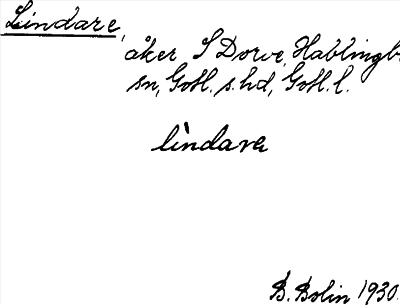 Lindare,
åker S Dorve, Hablingb
sn, Gotl. s. hd, Gotl. l.
lìndarɐ
B. Bolin 1930.